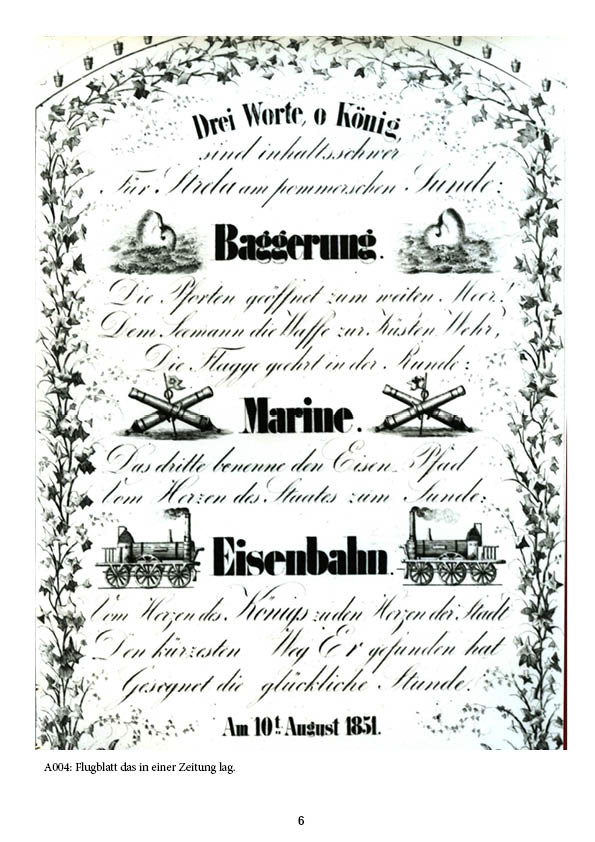 Drei Worte, o König,
sind inhaltsschwer
Für Strela am pommerschen Sunde:
Baggerung.
Die Pforten geöffnet zum weiten Meer!
Dem Seemann die Waffe zur Küsten Wehr,
Die Flagge geehrt in der Runde:
Marine.
Das dritte benenne den Eisen-Pfad
Vom Herzen des Staates zum Sunde:
Eisenbahn.
Vom Herzen des Königs zu den Herzen der Stadt
Den kürzesten Weg Er gefunden hat
Gesegnet die glückliche Stunde.
Am 10t. August 1851.
A004: Flugblatt das in einer Zeitung lag.
6